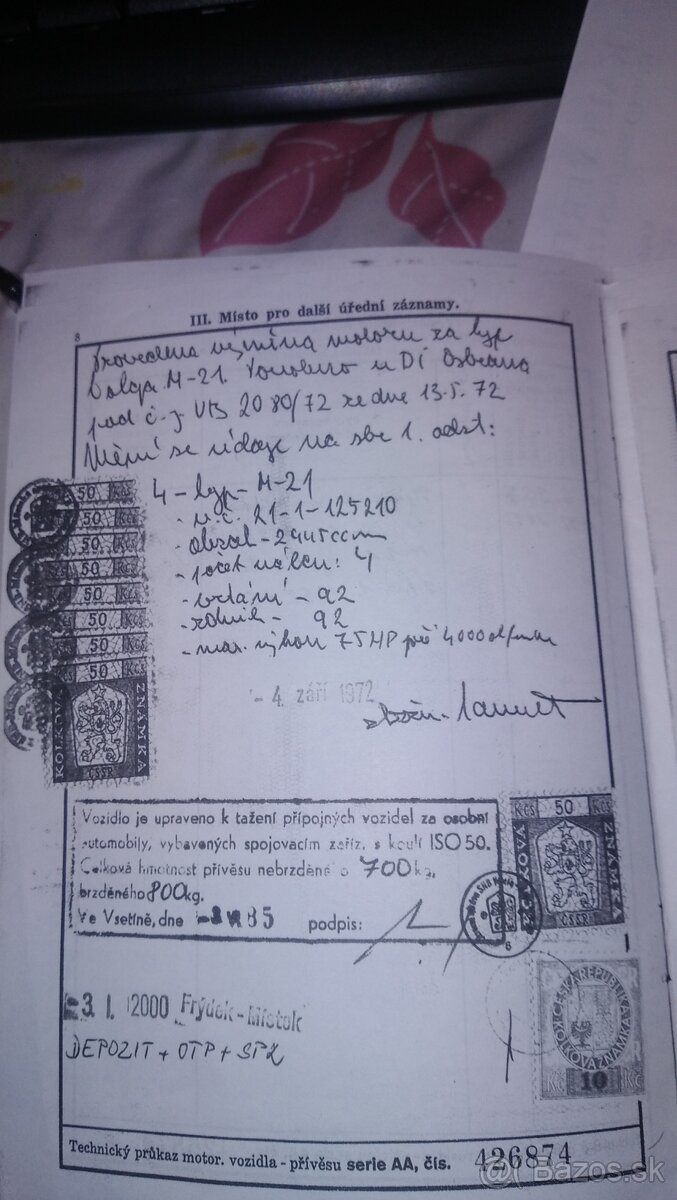 8
III. Místo pro další úřední záznamy.
Provedena výměna motoru za typ
Volga M-21. Povoleno u DI Ostrava
pod č.j VB 2080/72 ze dne 13.5.72
Mění se údaje na str 1. odst:
4 - typ - M-21
- v.č. 21-1-125210
- obsah - 2445 ccm
- počet válců: 4
- vrtání - 92
- zdvih - 92
- max. výkon 75HP při 4000 ot/min
- 4. září 1972
50 Kčs
50
50
50
50
50
50
50
KOLKOVÁ ZNÁMKA
ČSSR
Vozidlo je upraveno k tažení přípojných vozidel za osobní
automobily, vybavených spojovacím zaříz. s koulí ISO 50.
Celková hmotnost přívěsu nebrzděné o 700kg,
brzděného 800kg.
Ve Vsetíně, dne 85 podpis:
Kčs 50 Kčs
KOLKOVÁ ZNÁMKA
ČSSR
3. I. 2000 Frýdek-Místek
DEPOZIT + OTP + SPZ
ČESKÁ REPUBLIKA
KOLKOVÁ ZNÁMKA
Kč 10 Kč
Technický průkaz motor. vozidla - přívěsu serie AA, čís. 426874
Bazos.sk